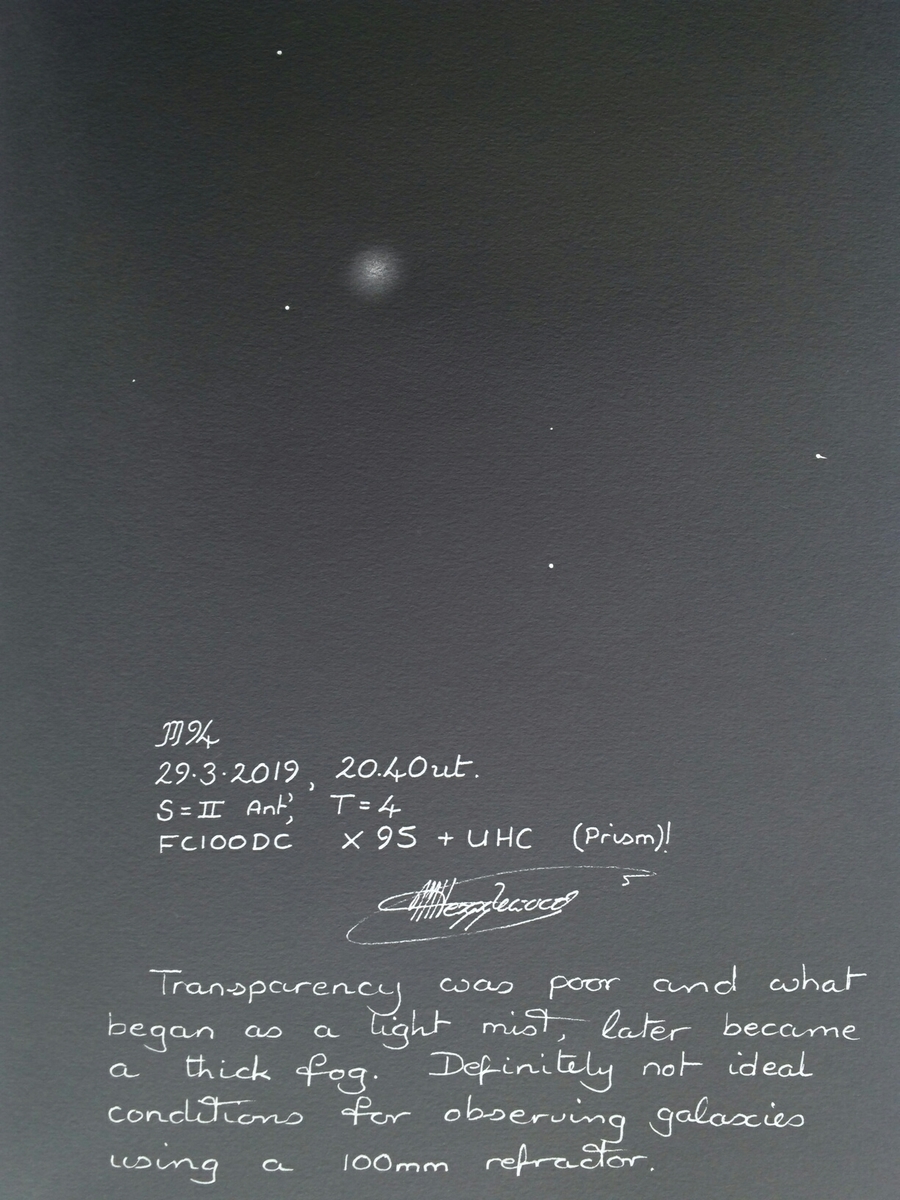 M94
29.3.2019, 20.40ut.
S=II Ant', T=4
FC100DC x 95 + UHC (Prism)!
Transparency was poor and what
began as a light mist, later became
a thick fog. Definitely not ideal
conditions for observing galaxies
using a 100mm refractor.